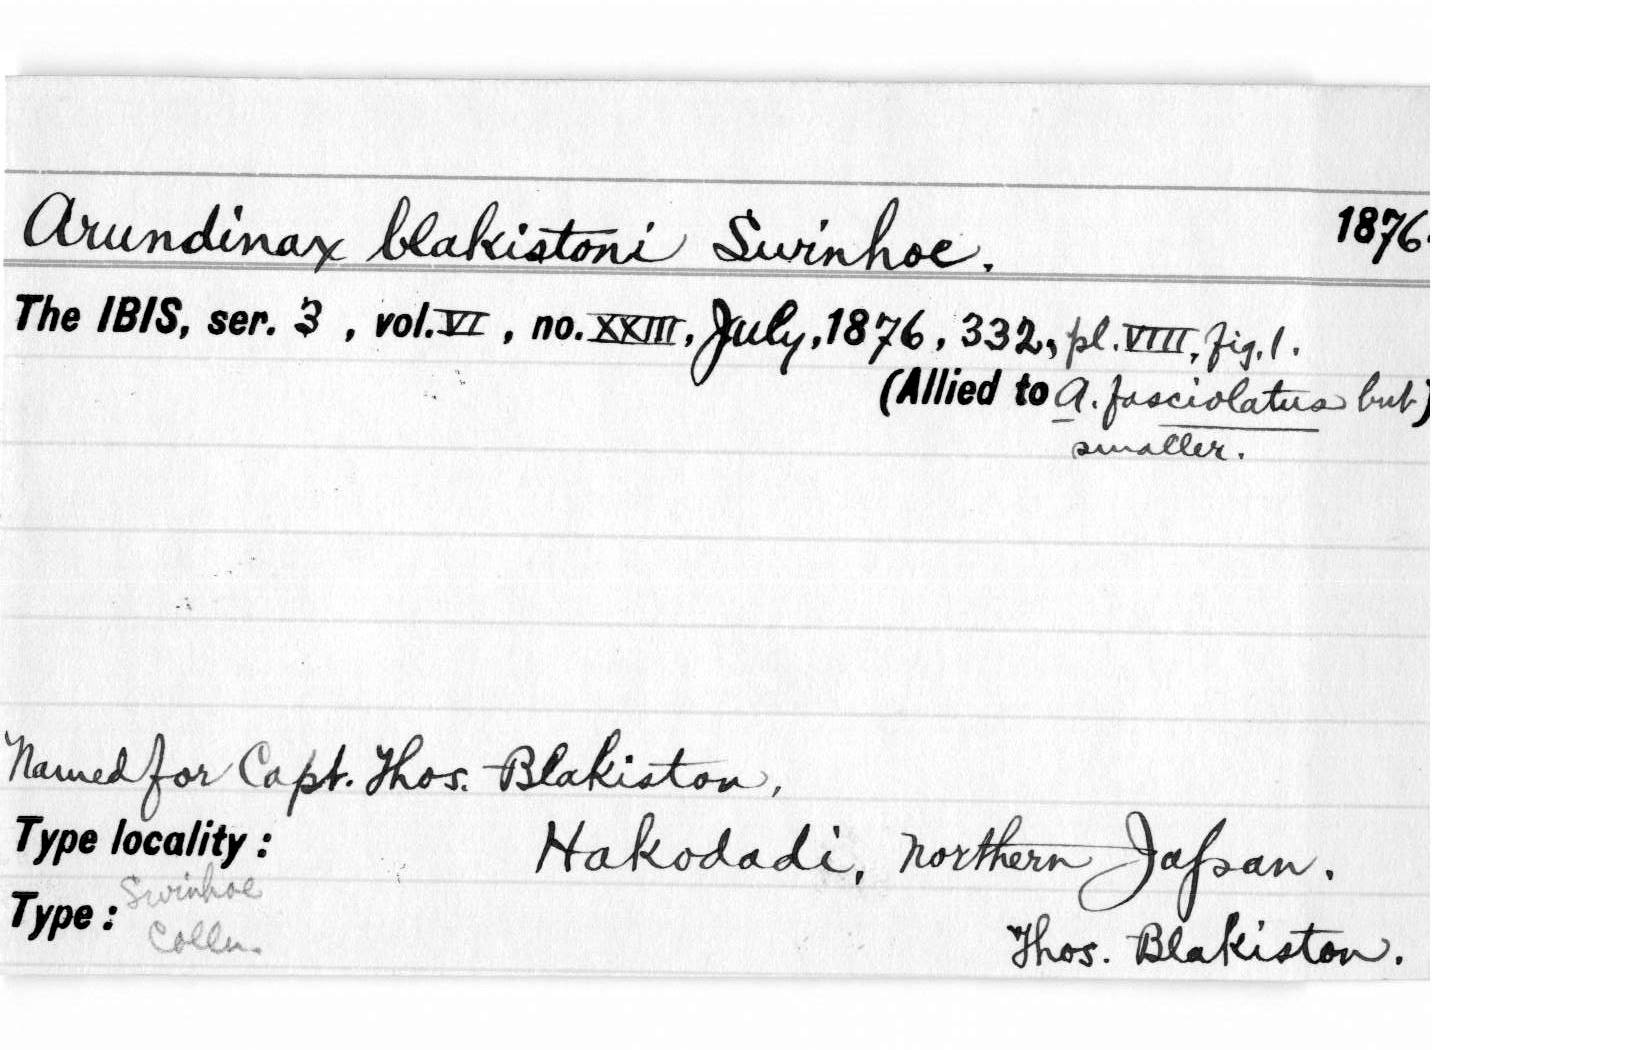 Arundinax blakistoni Swinhoe. 1876.
The IBIS, ser. 3, vol. VI, no. XXIII, July, 1876, 332, pl. VIII, fig. 1.
(Allied to A. fasciolatus but)
smaller.
Named for Capt. Thos. Blakiston,
Type locality: Hakodadi, northern Japan.
Type: Swinhoe
Colln.
Thos. Blakiston.